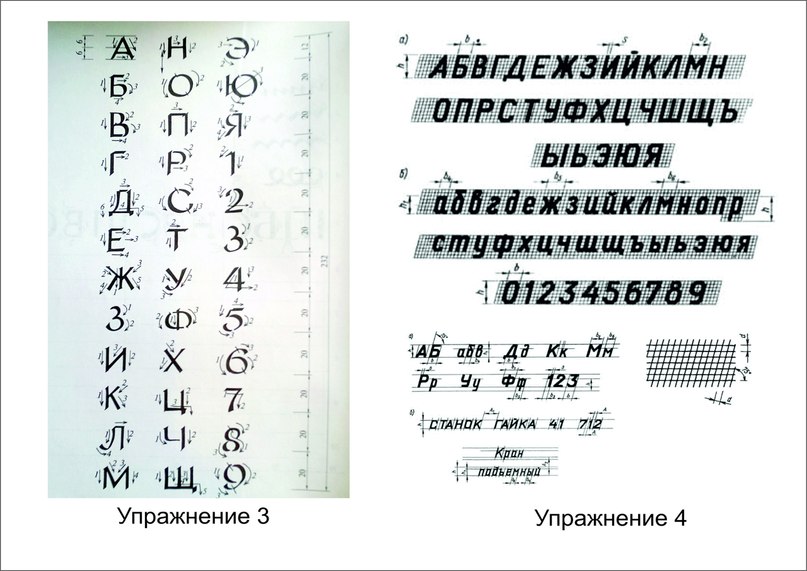 А Н Э
Б О Ю
В П Я
Г Р 1
Д С 2
Е Т 3
Ж У 4
З Ф 5
И Х 6
К Ц 7
Л Ч 8
М Щ 9
6 6
12
20
20
20
20
20
20
20
20
20
20
20
232
Упражнение 3
а)
b
s
b₂
h
АБВГДЕЖЗИЙКЛМН
ОПРСТУФХЦЧШЩЪ
ЫЬЭЮЯ
б)
h
абвгдежзийклмнопр
стуфхцчшщъыьэюя
b
h
0123456789
АБ абв Дд Кк Мм
Рр Уу Фф 123
СТАНОК ГАЙКА 41 712
Кран
подъемный
Упражнение 4